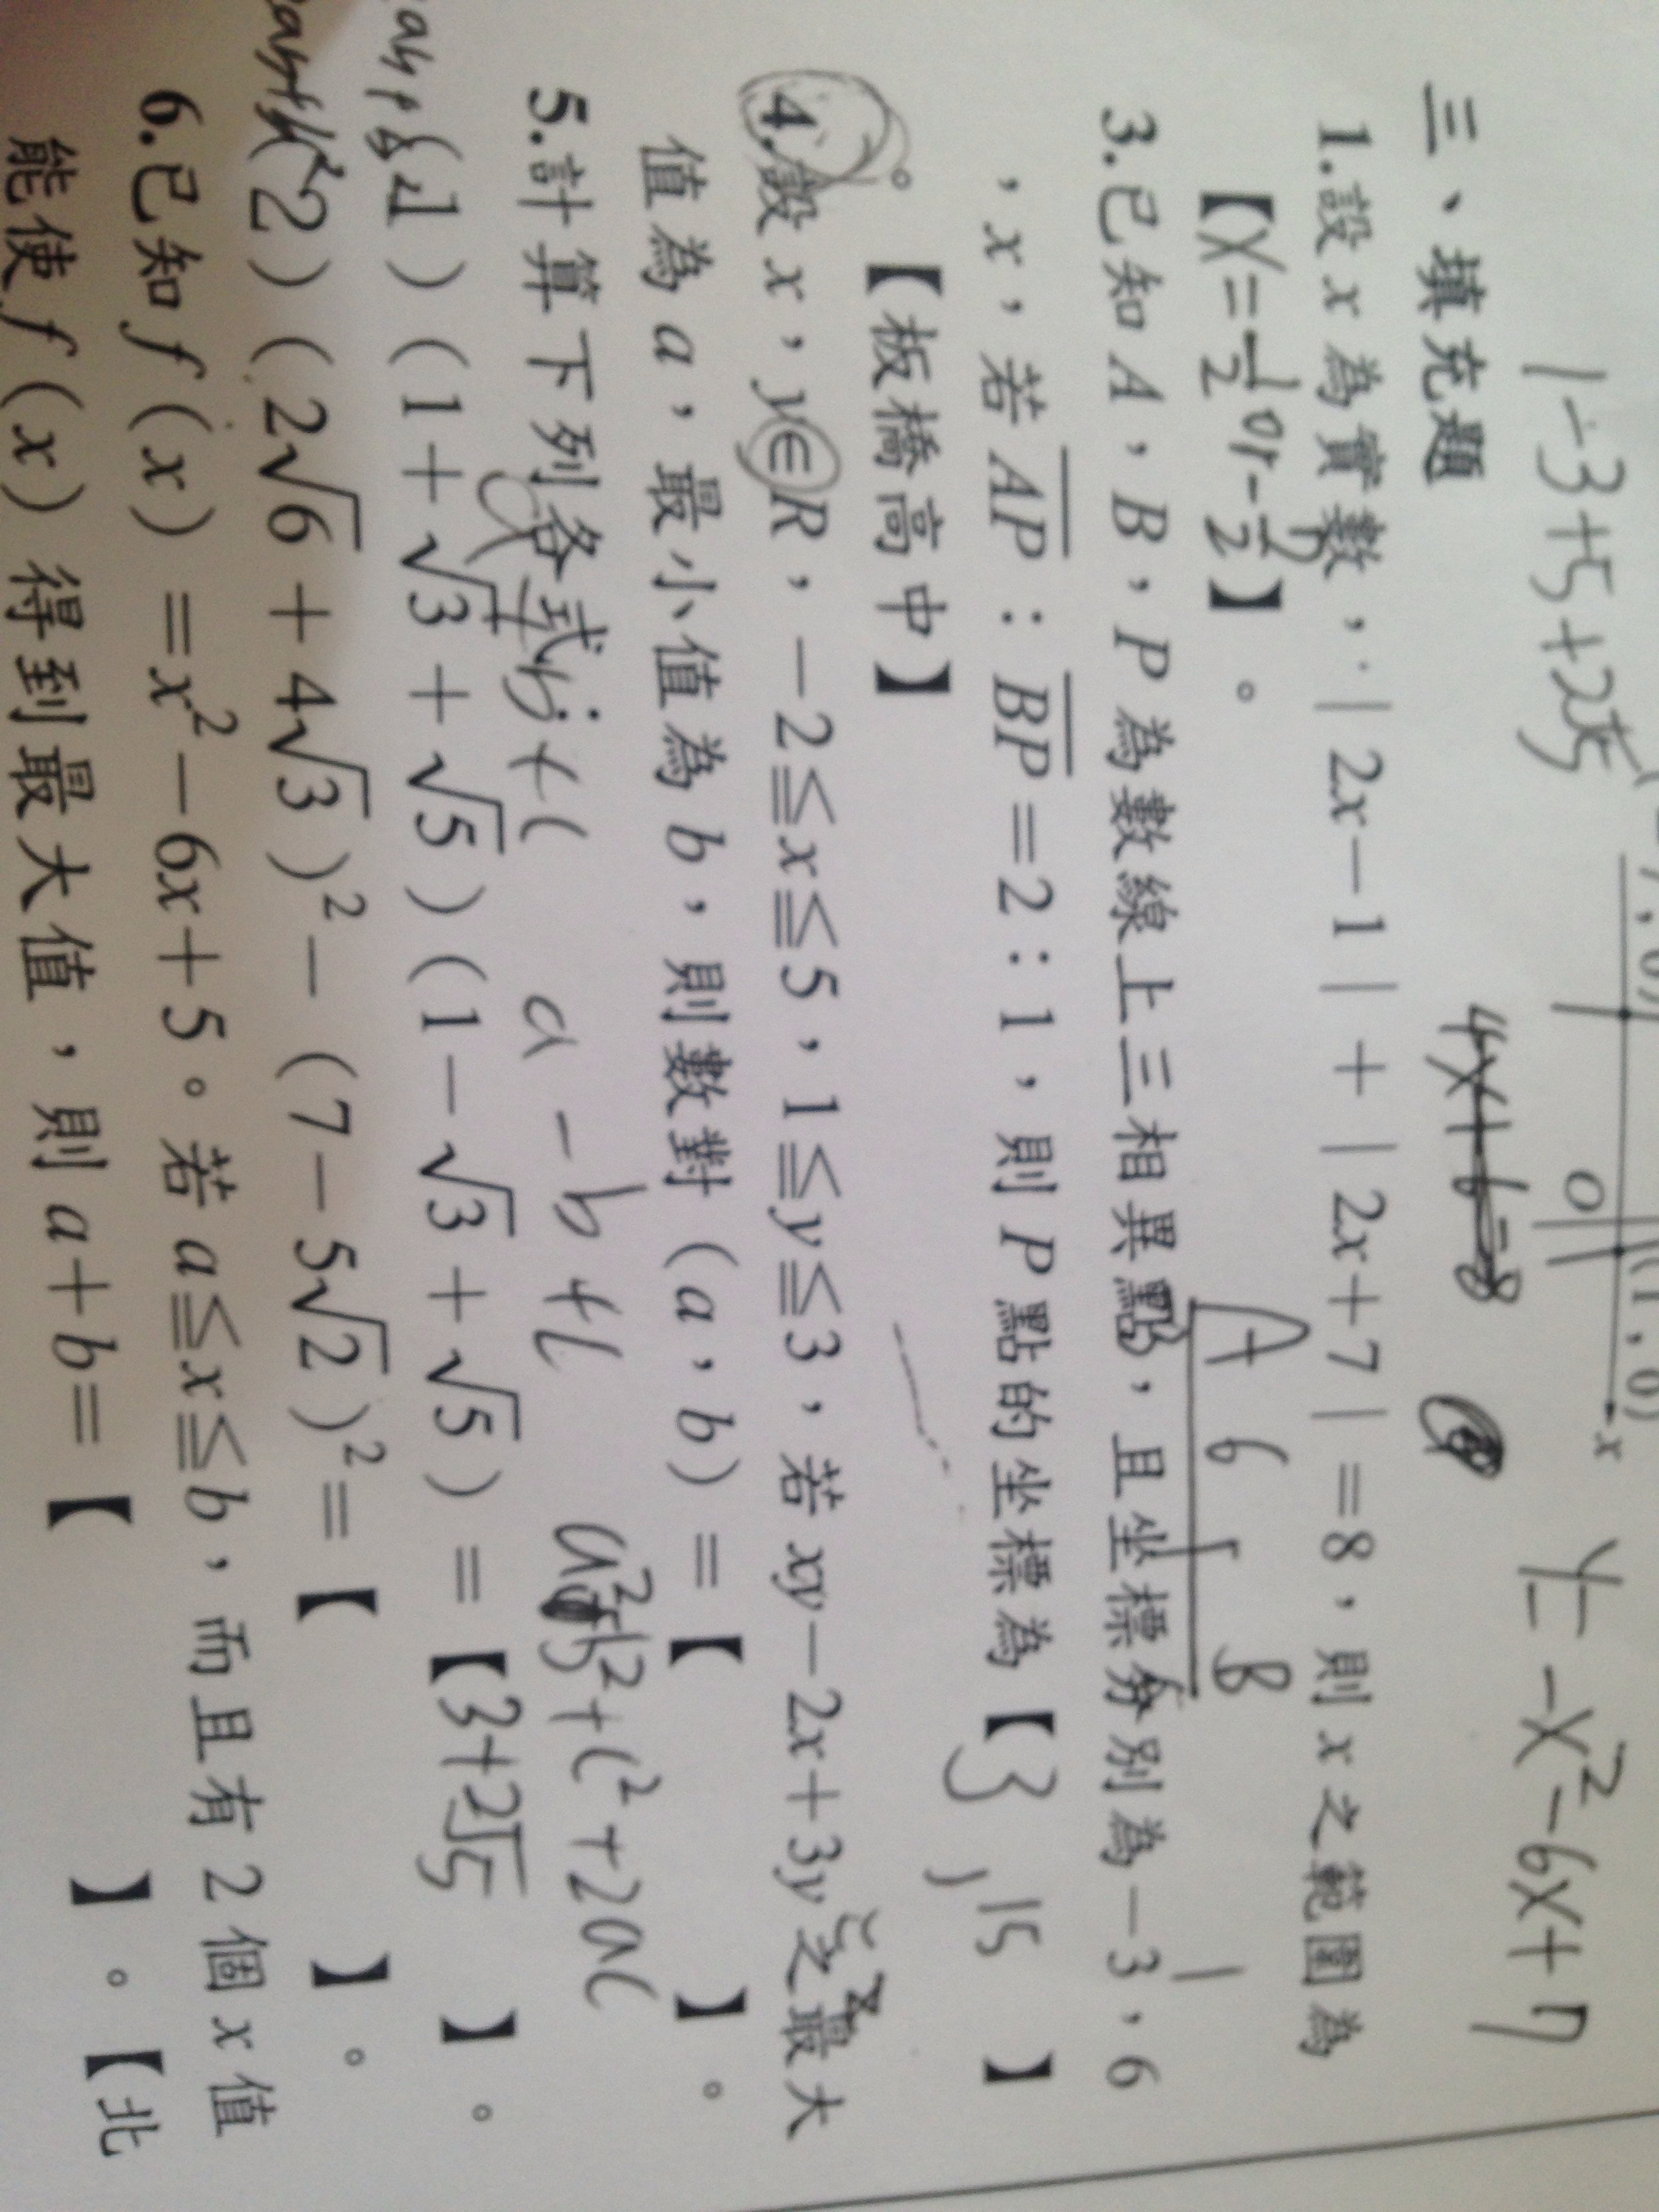 1-3+5+2√5
y=-x²-6x+7
三、填充題
4x+6=8
1.設 x 為實數，| 2x－1 |＋| 2x＋7 |＝8，則 x 之範圍為
【x=1/2 or -7/2】。
A 6 B
3.已知 A，B，P 為數線上三相異點，且坐標分別為－3，6
，x，若 AP：BP＝2：1，則 P 點的坐標為【3，15】
。【板橋高中】
4.設 x，y∈R，－2≦x≦5，1≦y≦3，若 xy－2x＋3y 之最大
值為 a，最小值為 b，則數對（a，b）＝【 】。
5.計算下列各式：
a+b+c a-b+c a²-b²+c²+2ac
（1）（1＋√3＋√5）（1－√3＋√5）＝【3+2√5】。
（2）（2√6＋4√3）²－（7－5√2）²＝【 】。
6.已知 f（x）＝x²－6x＋5。若 a≦x≦b，而且有 2 個 x 值
能使 f（x）得到最大值，則 a＋b＝【 】。【北